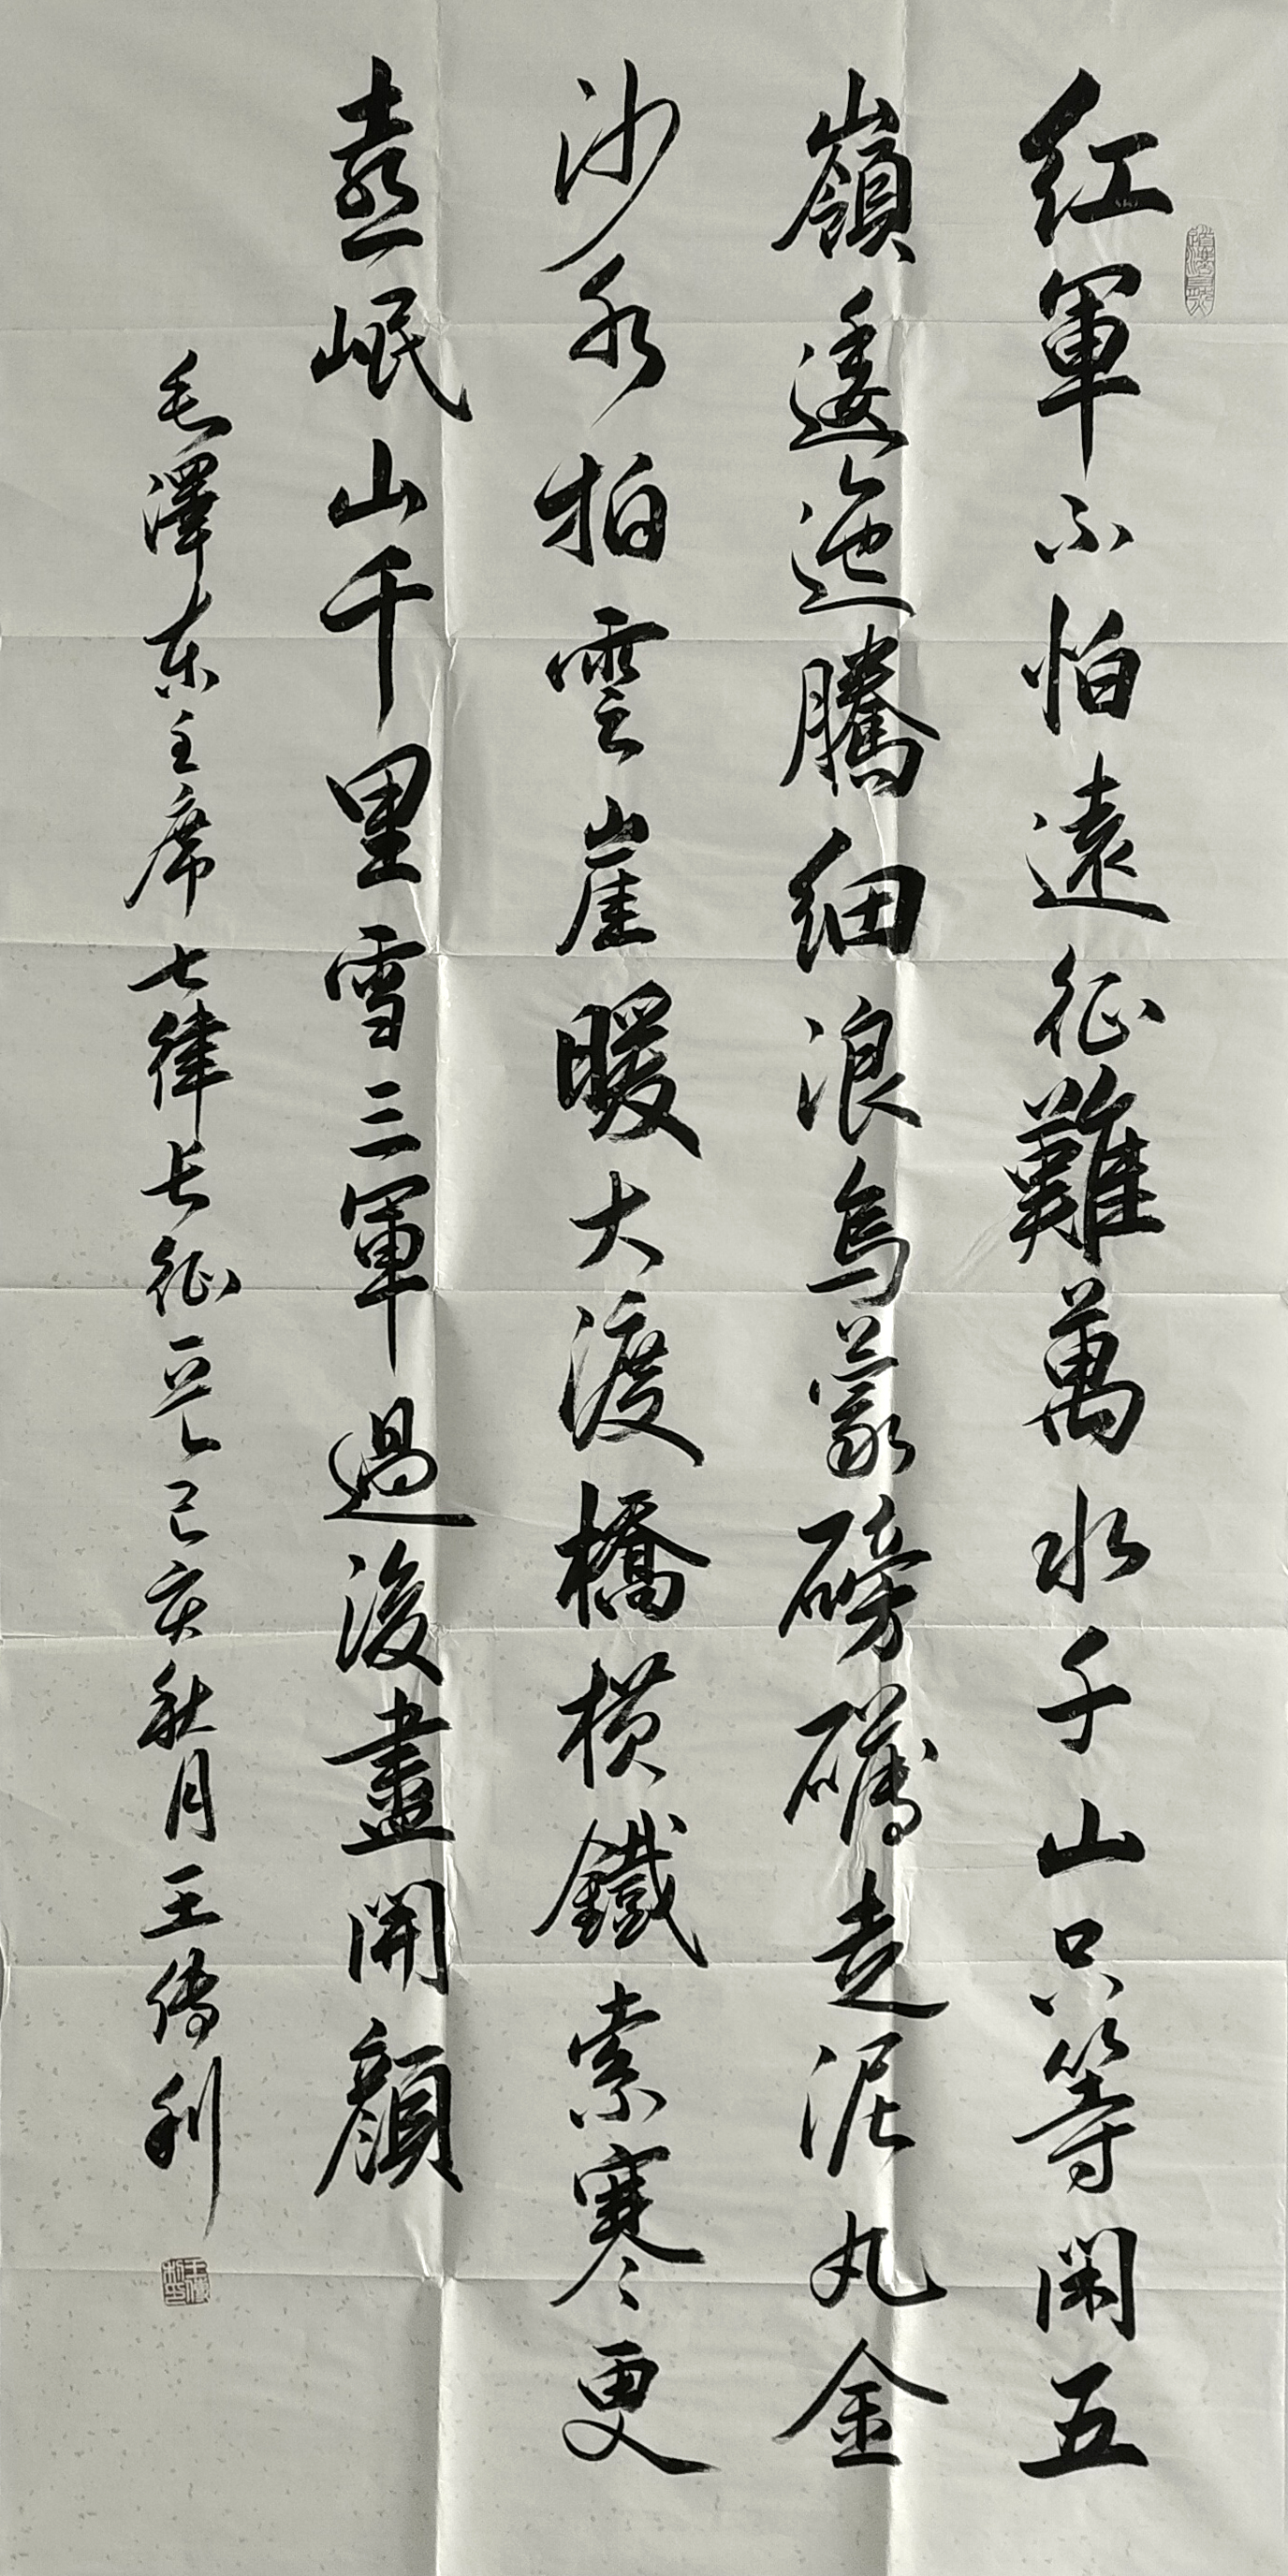 紅軍不怕遠征難萬水千山只等閑五
嶺逶迤騰細浪烏蒙磅礴走泥丸金
沙水拍雲崖暖大渡橋橫鐵索寒更
喜岷山千里雪三軍過後盡開顏
毛澤東主席七律长征一首己亥秋月王传利